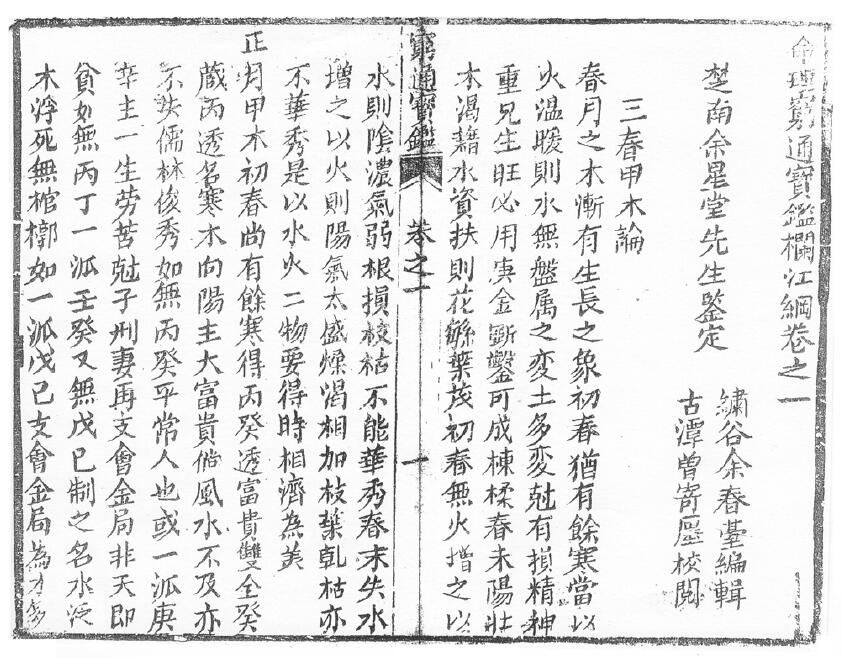 命理窮通寶鑑欄江綱卷之一
楚南余星堂先生鑒定
繡谷余春臺編輯
古潭曾寄塵校閱
三春甲木論
春月之木慚有生長之象初春猶有餘寒當以
火温暖則水無盤属之変土多変尅有損精神
重見生旺必用庚金斲鑿可成棟樑春末陽壯
木渴藉水資扶則花繁葉茂初春無火增之以
窮通寶鑑
卷之一
一
水則陰濃氣弱根損枝枯不能華秀春末失水
增之以火則陽氣太盛燥渴相加枝葉乹枯亦
不華秀是以水火二物要得時相濟為美
正月甲木初春尚有餘寒得丙癸透富貴雙全癸
蔵丙透名寒木向陽主大富貴倘風水不及亦
不失儒林俊秀如無丙癸平常人也或一派庚
辛主一生勞苦尅子刑妻再支會金局非夭即
貧如無丙丁一派壬癸又無戊己制之名水泛
木浮死無棺槨如一派戊己支會金局為才多